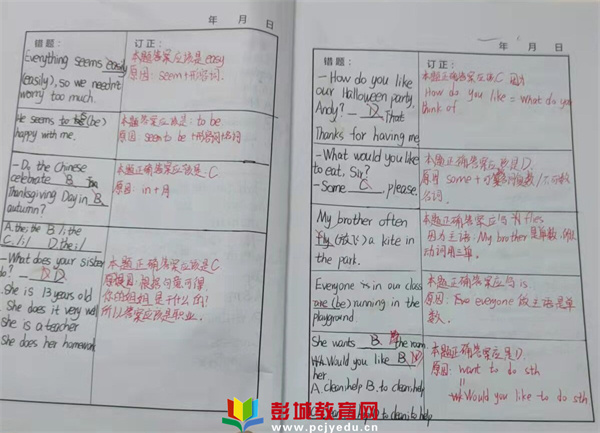 年 月 日
错题:
订正:
Everything seems easy
(easily), so we needn't
worry too much.
本题答案应该是easy
原因: seem+形容词.
He seems to be (be)
happy with me.
本题答案应该是: to be
原因: seem to be +形容词/名词
- Do the Chinese
celebrate B
Thanksgiving Day in B
autumn?
A. the; the B. /; the
C. /; / D. the; /
本题正确答案应该是: C
原因: in + 月
- What does your sister
to? D
She is 13 years old.
She does it very well
She is a teacher
She does her homework
本题正确答案应该是C
原因: 根据句意可得
你的姐姐是干什么的?
所以答案应该是职业.
年 月 日
错题:
订正:
- How do you like
our Halloween party,
Andy? — D. That
Thanks for having me.
本题正确答案应该C 因为
How do you like = what do you
think of.
- What would you like
to eat, Sir?
- Some C, please.
本题正确答案应该是D.
原因 some + 可数名词复数/不可数
名词.
My brother often
fly (放飞) a kite in
the park.
本题正确答案应写 flies
因为主语: My brother是单数,
动词用三单.
Everyone is in our class
are (be) running in the
playground
本题正确答案应写 is.
原因: everyone 做主语是单
数.
She wants B the room
Would you like B
her
A. clean; help B. to clean; help
to clean; to help
本题正确答案应是D.
原因: want to do sth
Would you like to do sth
彭城教育网
www.pcjyedu.cn